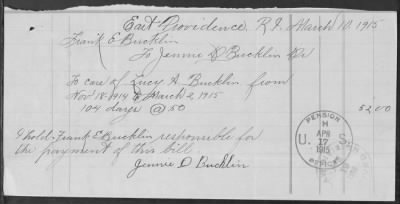 East Providence, R.I. March 10, 1915
Frank E Bucklin
To Jennie D Bucklin Dr
To care of Lucy A. Bucklin from
Nov 18-1914 to March 2, 1915
104 days @ 50 52.00
I hold Frank E Bucklin responsible for
the payment of this bill
Jennie D Bucklin
PENSION
H
U. APR S.
17
1915
OFFICE